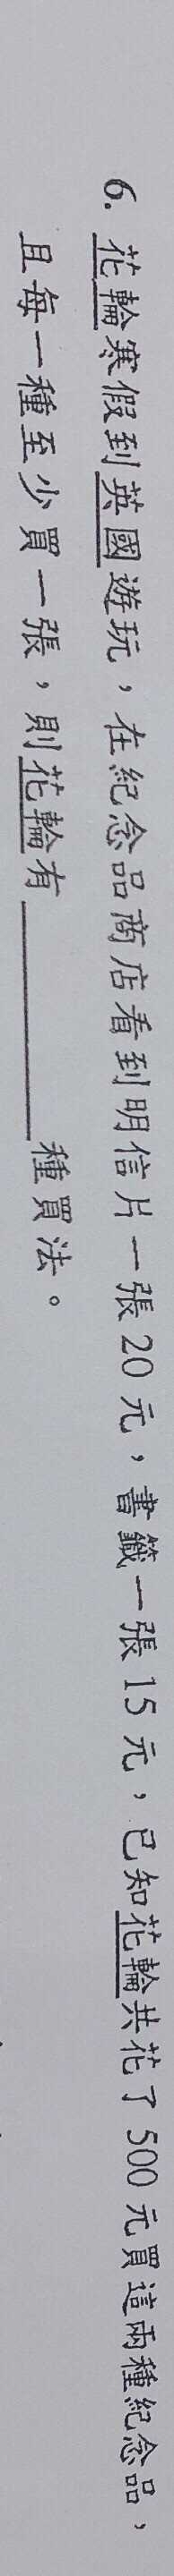 6. 花輪寒假到英國遊玩，在紀念品商店看到明信片一張 20 元，書籤一張 15 元，已知花輪共花了 500 元買這兩種紀念品，
且每一種至少買一張，則花輪有＿＿＿＿＿＿種買法。